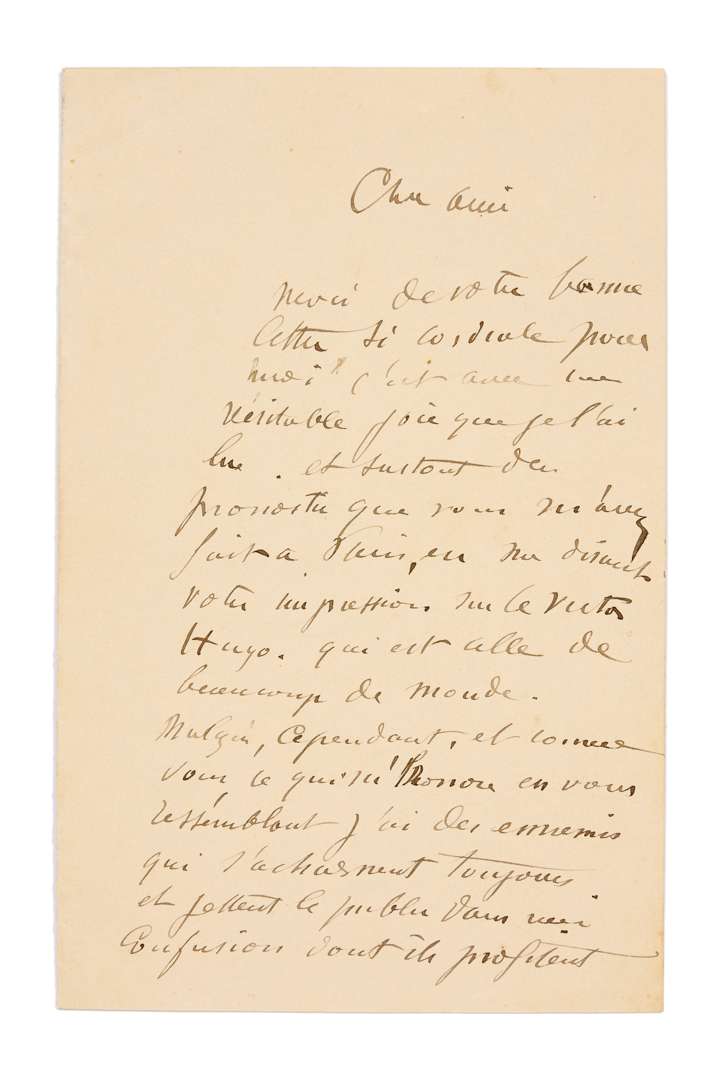 Cher ami
merci de votre bonne
lettre si cordiale pour
moi c'est avec une
véritable joie que je l'ai
lue. et surtout du
pronostic que vous m'avez
fait a Paris, en me disant
votre impression sur le Victor
Hugo. qui est celle de
beaucoup de monde.
Malgré, cependant, et comme
vous ce qui m'honore en vous
ressemblant j'ai des ennemis
qui s'acharnent toujours
et jettent le public dans une
Confusion dont ils profitent